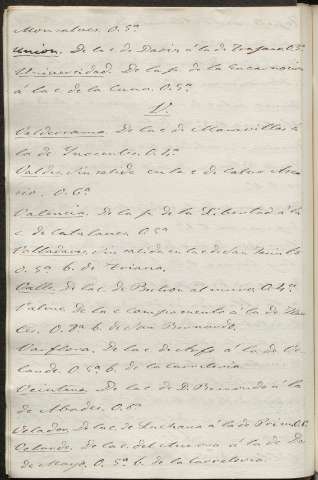 Monsalves. O. 5ª
Union. De la c. de Daois á la de Trajano O. 5ª
Universidad. De la p. de la Encarnacion
á la c. de la Cuna. O. 5ª
V.
Valderrama. De la c. de Maravillas á
la de Inocentes. O. 4ª
Valdes, sin salida en la c. de Calvo Asen
sio. O. 6ª
Valencia. De la p. de la Libertad á la
c. de Catalanes. O. 5ª
Valladares, sin salida en la c. de San Jacinto
O. 5ª b. de Triana.
Valle. De la c. de al muro. O. 4ª
Valme. De la c. Campamento á la de
O. 8ª b. de San Bernardo.
Vanflora. De la c. de á la de
lande. O. 5ª b. de la Carreteria
Veintena. De la c. de D. Remondo á la
de Abades. O. 6ª
Velador. De la c. de Luchana á la de
Velarde. De la c. del á la de Do
de Mayo. O. 5ª b. de la Carreteria